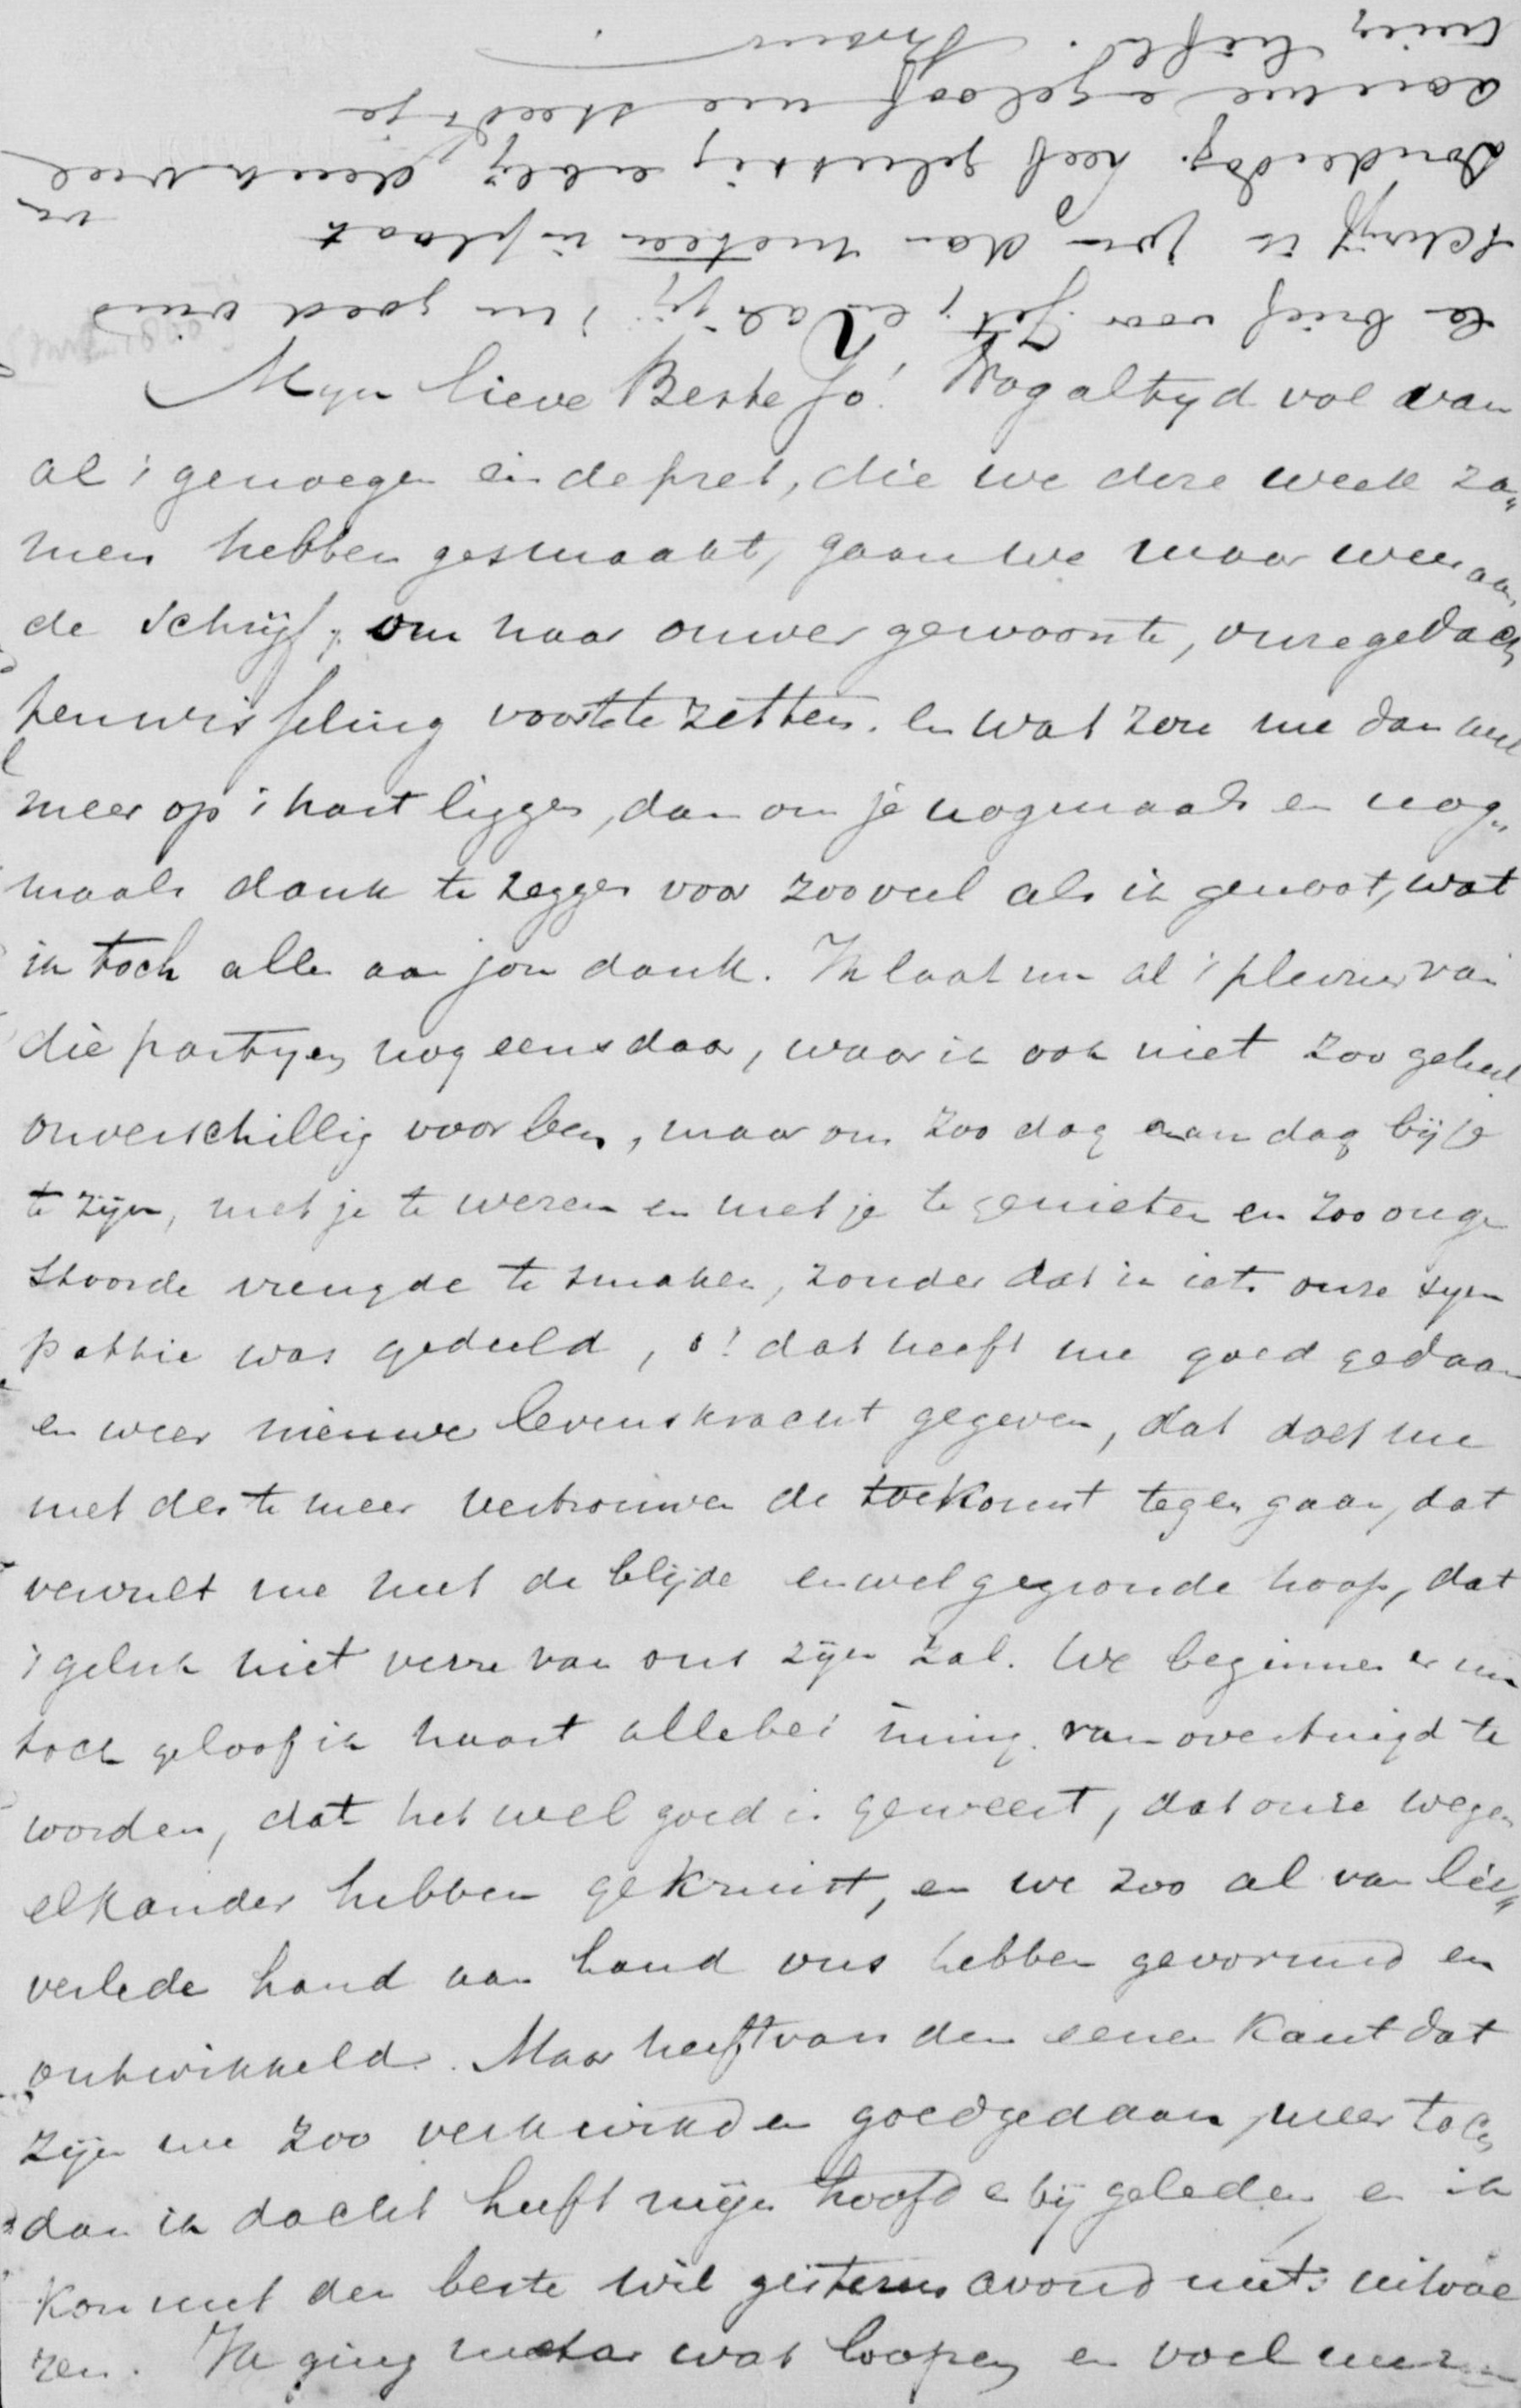 Mijn lieve Beste Jo! Nog altyd vol van
al 't genoegen en de pret, die we deze week za„
men hebben gesmaakt, gaan we maar weer aan
de schrijf, om naar onwer gewoonte, onze gedach„
tenwisseling voort te zetten. En wat zou me dan wel
meer op 't hart liggen, dan om je nogmaals en nog„
maals dank te zeggen voor zooveel als ik genoot, wat
ik toch alles aan jou dank. Ik laat nu al 't plezier van
die partyen nog eens daar, waar ik ook niet zoo geheel
onverschillig voor ben, maar om zoo dag aan dag bij je
te zijn, met je te wezen en met je te genieten en zoo onge
stoorde vreugde te smaken, zonder dat in iets onze sym
pathie was gedeeld, o! dat heeft me goed gedaan
en weer nieuwe levenskracht gegeven, dat doet me
met des te meer vertrouwen de toekomst tegen gaan, dat
vervult me met de blijde en welgegronde hoop, dat
't geluk niet verre van ons zijn zal. We beginnen er nu
toch geloof ik haast allebei innig van overtuigd te
worden, dat het wel goed is geweest, dat onze wegen
elkander hebben gekruist, en we zoo al van lie„
verlede hand aan hand ons hebben gevormd en
ontwikkeld. Maar heeft van den eenen kant dat
zijn me zoo verkwikt en goedgedaan, meer toch
dan ik dacht heeft mijn hoofd er bij geleden en ik
kon met den besten wil gisteren avond niets uitvoe
ren. Ik ging wat loopen en voel me
le brief voor Jet; en als jij 't nu goed vind
schrijf ik jou dan meteen in plaats van
Donderdag. Leef gelukkig en blij, denk veel
aan me en geloof me steeds je
innig liefh. Bram